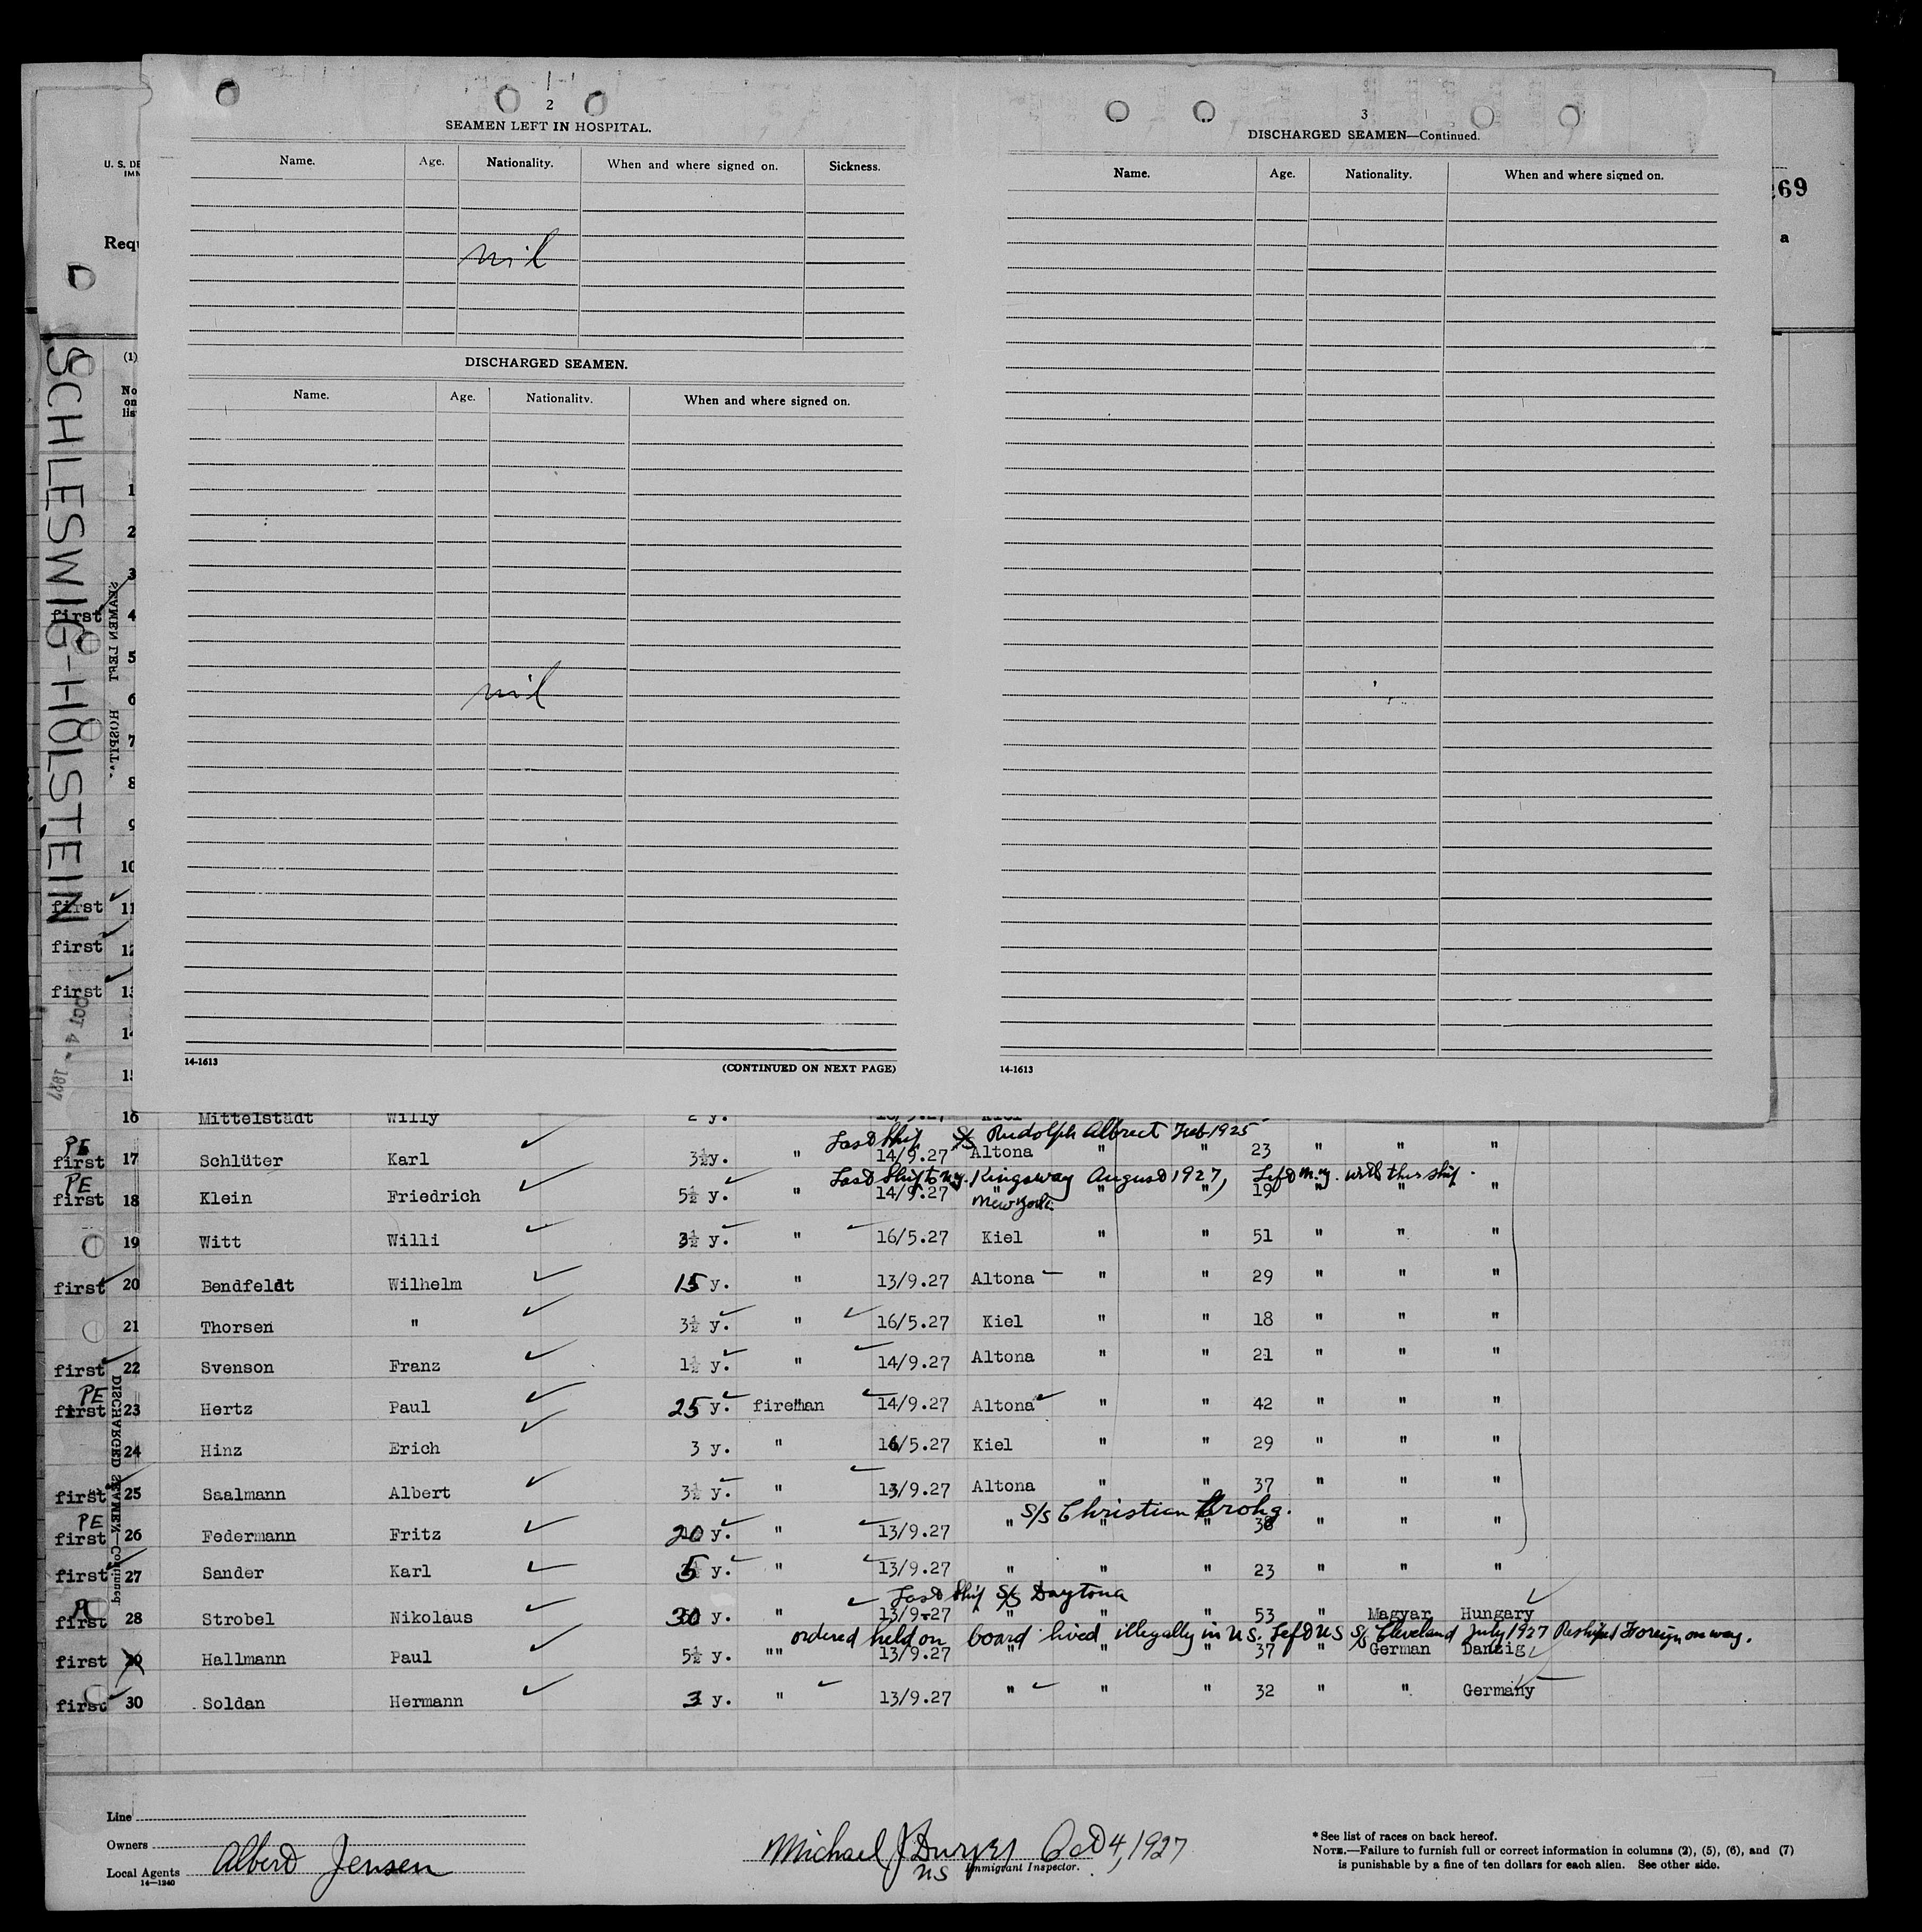 2
SEAMEN LEFT IN HOSPITAL.
Name. Age. Nationality. When and where signed on. Sickness.
nil
DISCHARGED SEAMEN.
Name. Age. Nationality. When and where signed on.
nil
14-1613
(CONTINUED ON NEXT PAGE)
3
DISCHARGED SEAMEN—Continued.
Name. Age. Nationality. When and where signed on.
14-1613
U. S. DE
IMM
Requ
269
a
SCHLESWIG-HOLSTEIN
(1)
No
on
lis
1
2
3
first 4
5
6
7
8
9
10
first 11
first 12
first 13
14
15
OCT 4 - 1927
SEAMEN LEFT HOSPITA
16 Mittelstädt Willy 2 y. Kiel
Last Ship S/S Rudolph Albrect Feb 1925
PE first 17 Schlüter Karl 3½y. " 14/9.27 Altona " " 23 " " "
Last Ship to N.Y. Kingsway August 1927, Left N.Y. with this ship.
PE first 18 Klein Friedrich 5½ y. " 14/9.27 " " " 19 " " "
New York
19 Witt Willi 3½ y. " 16/5.27 Kiel " " 51 " " "
first 20 Bendfeldt Wilhelm 15 y. " 13/9.27 Altona " " 29 " " "
21 Thorsen " 3½ y. " 16/5.27 Kiel " " 18 " " "
first 22 Svenson Franz 1½ y. " 14/9.27 Altona " " 21 " " "
PE first 23 Hertz Paul 25 y. fireman 14/9.27 Altona " " 42 " " "
24 Hinz Erich 3 y. " 16/5.27 Kiel " " 29 " " "
first 25 Saalmann Albert 3½ y. " 13/9.27 Altona " " 37 " " "
S/S Christian Krohg.
PE first 26 Federmann Fritz 20 y. " 13/9.27 " " " 38 " " "
first 27 Sander Karl 5 y. " 13/9.27 " " " 23 " " "
Last Ship S/S Daytona
first 28 Strobel Nikolaus 30 y. " 13/9-27 " " " 53 " Magyar Hungary
ordered held on board lived illegally in US. Left US S/S Cleveland July 1927 Reshipped Foreign on way.
first 29 Hallmann Paul 5½ y. "" 13/9.27 " " " 37 " German Danzig
first 30 Soldan Hermann 3 y. " 13/9.27 " " " 32 " " Germany
DISCHARGED SEAMEN—Continued
Line
Owners
Local Agents Albert Jensen
14—1240
Michael J Dwyer Oct 4, 1927
NS Immigrant Inspector.
* See list of races on back hereof.
NOTE.—Failure to furnish full or correct information in columns (2), (5), (6), and (7)
is punishable by a fine of ten dollars for each alien. See other side.